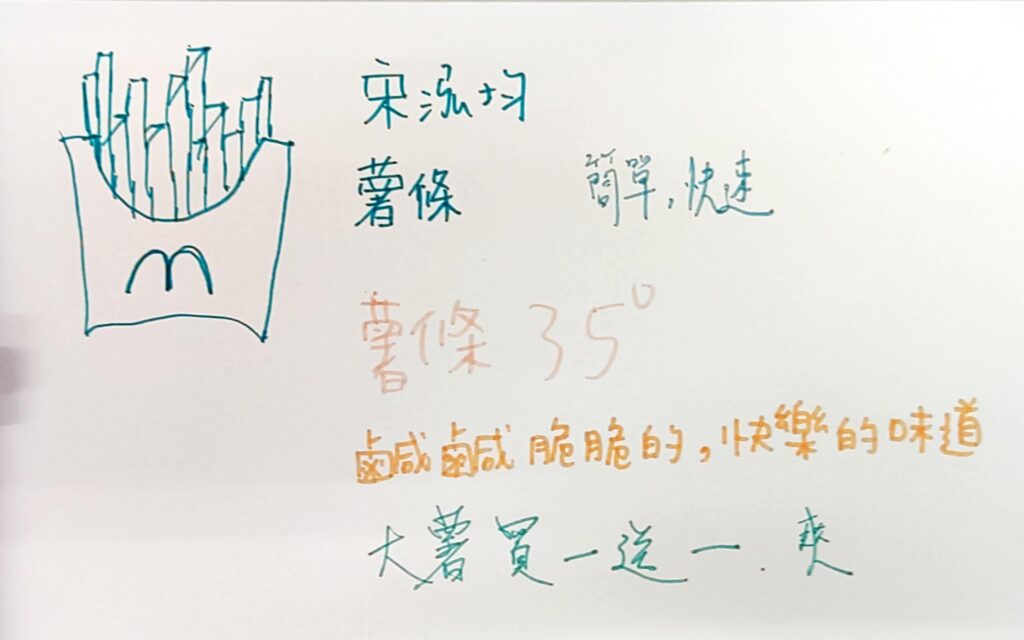 宋泓均
薯條 簡單,快速
薯條 35°
鹹鹹脆脆的,快樂的味道
大薯買一送一.爽
m